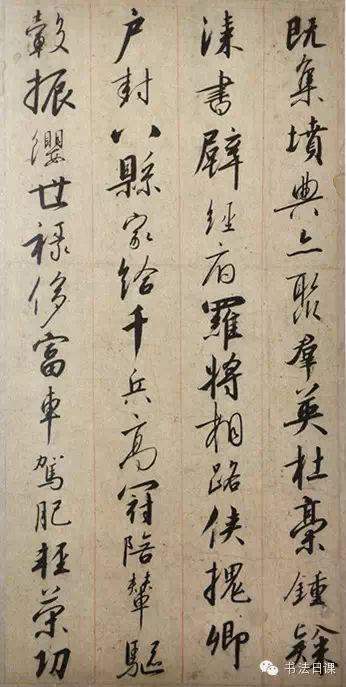 既集墳典亦聚群英杜稾鍾隸
漆書壁經府羅將相路俠槐卿
户封八縣家給千兵高冠陪輦驅
轂振纓世祿侈富車駕肥輕策功
书法日课